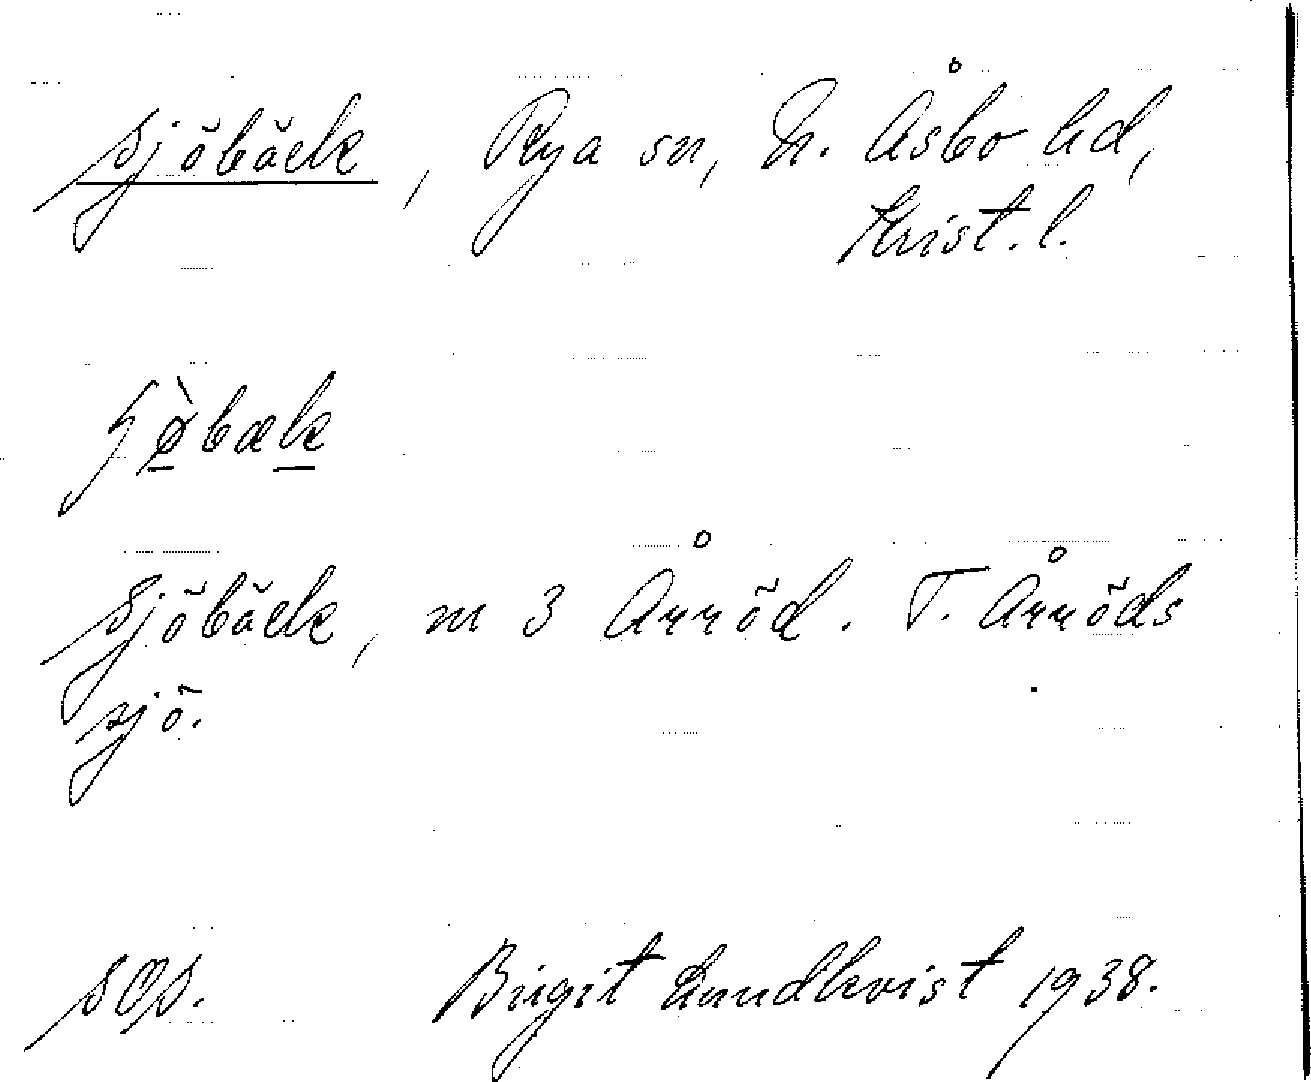 Sjöbäck, Rya sn, N. Åsbo hd,
Krist. l.
ɧø̀bæk
Sjöbäck, m 3 Årröd. T. Årröds
sjö.
SOS. Birgit Lundkvist 1938.